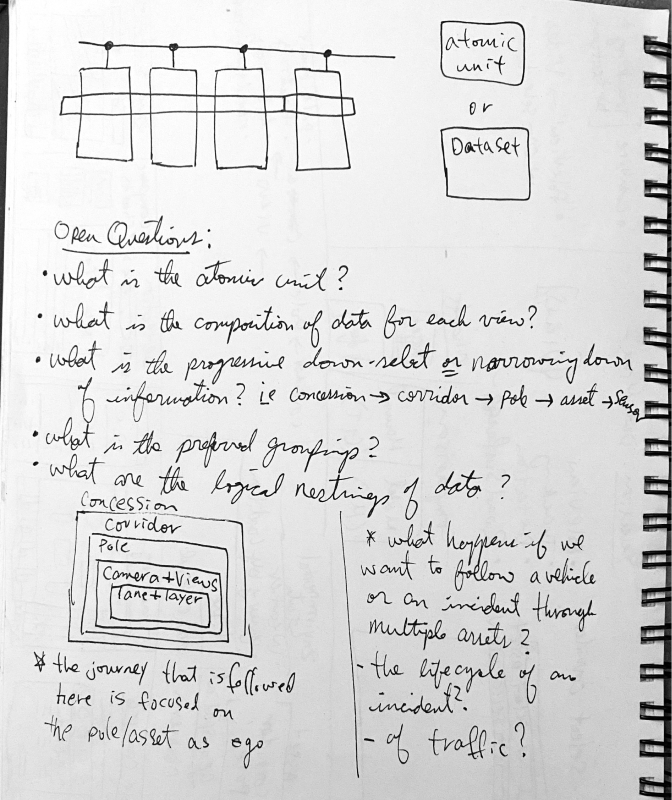 atomic
unit
or
Dataset
Open Questions:
• what is the atomic unit?
• what is the composition of data for each view?
• what is the progressive down-select or narrowing down
of information? ie concession → corridor → pole → asset → sensor
• what is the preferred groupings?
• what are the logical nestings of data?
Concession
Corridor
Pole
Camera + Views
lane + layer
* the journey that is followed
here is focused on
the pole/asset as ego
* what happens if we
want to follow a vehicle
or an incident through
multiple assets?
- the lifecycle of an
incident?
- of traffic?